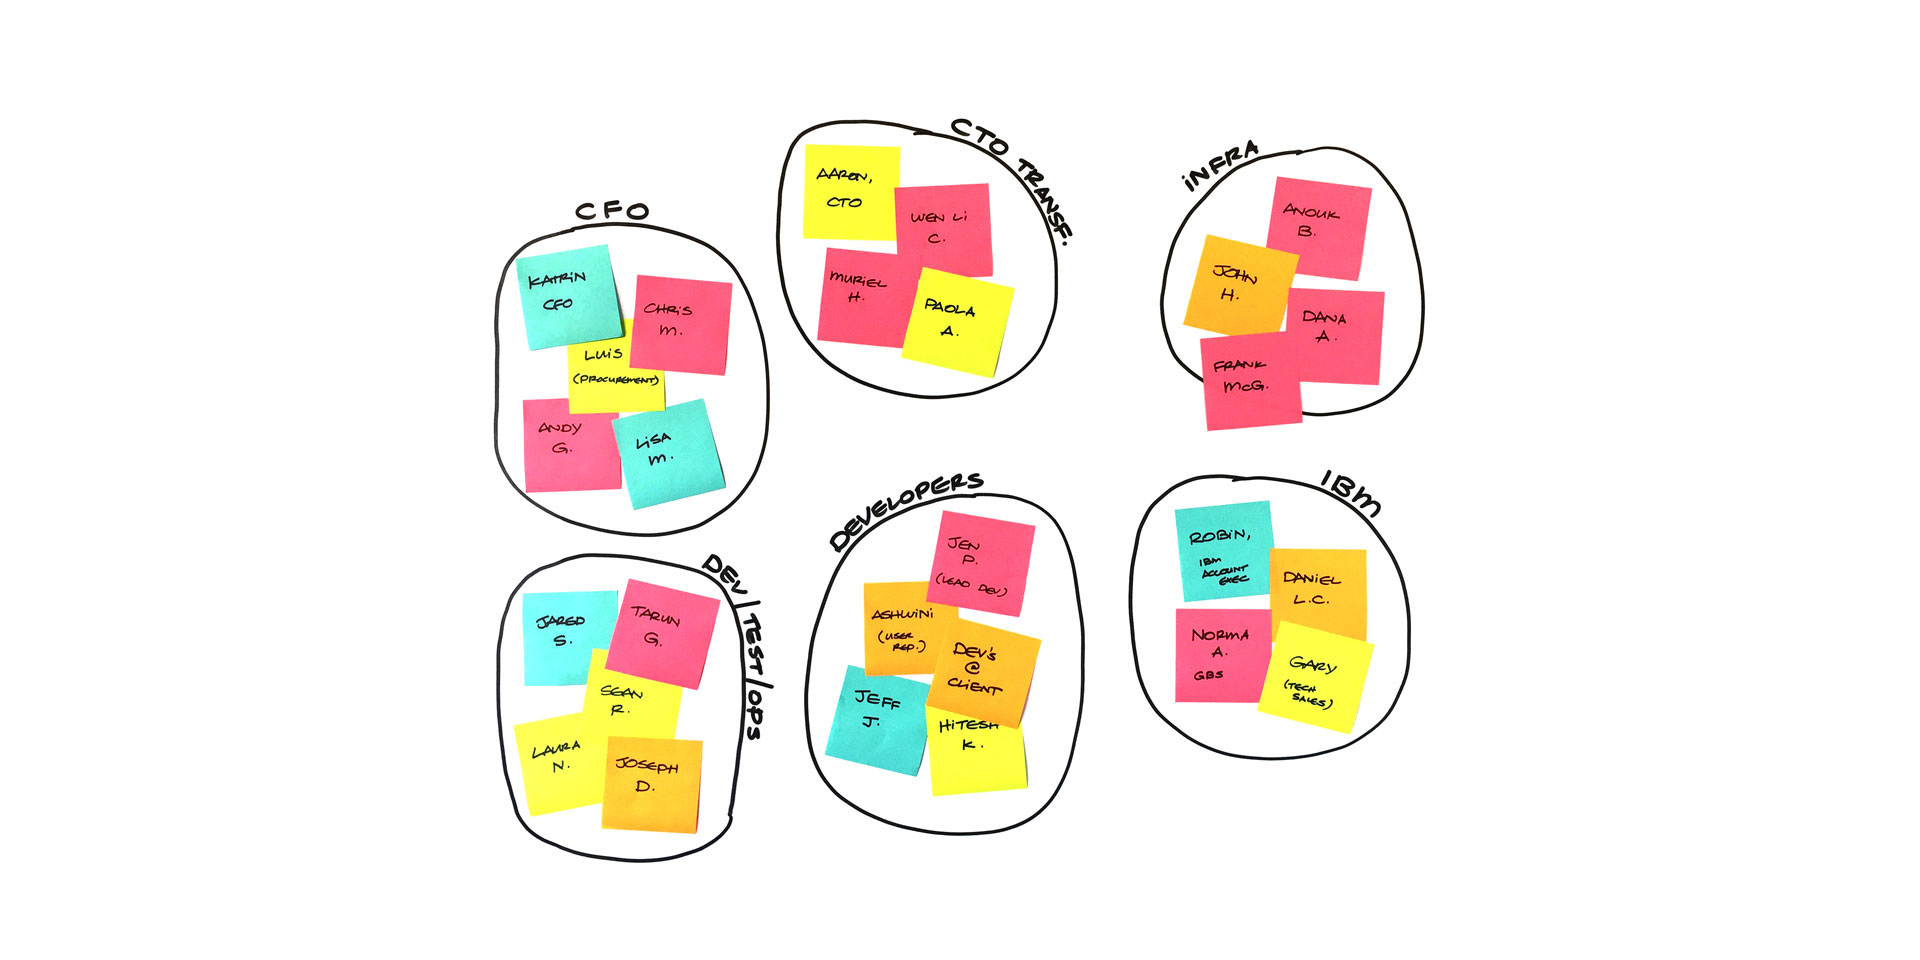 CFO
KATRIN
CFO
CHRIS
M.
LUIS
(PROCUREMENT)
ANDY
G.
LISA
M.
CTO TRANSF.
AARON,
CTO
WEN LI
C.
MURIEL
H.
PAOLA
A.
INFRA
ANOUK
B.
JOHN
H.
DANA
A.
FRANK
McG.
DEV/TEST/OPS
JARED
S.
TARUN
G.
SEAN
R.
LAURA
N.
JOSEPH
D.
DEVELOPERS
JEN
P.
(LEAD DEV)
ASHWINI
(USER
REP.)
DEV'S
@
CLIENT
JEFF
J.
HITESH
K.
IBM
ROBIN,
IBM
ACCOUNT
EXEC
DANIEL
L.C.
NORMA
A.
GBS
GARY
(TECH
SALES)